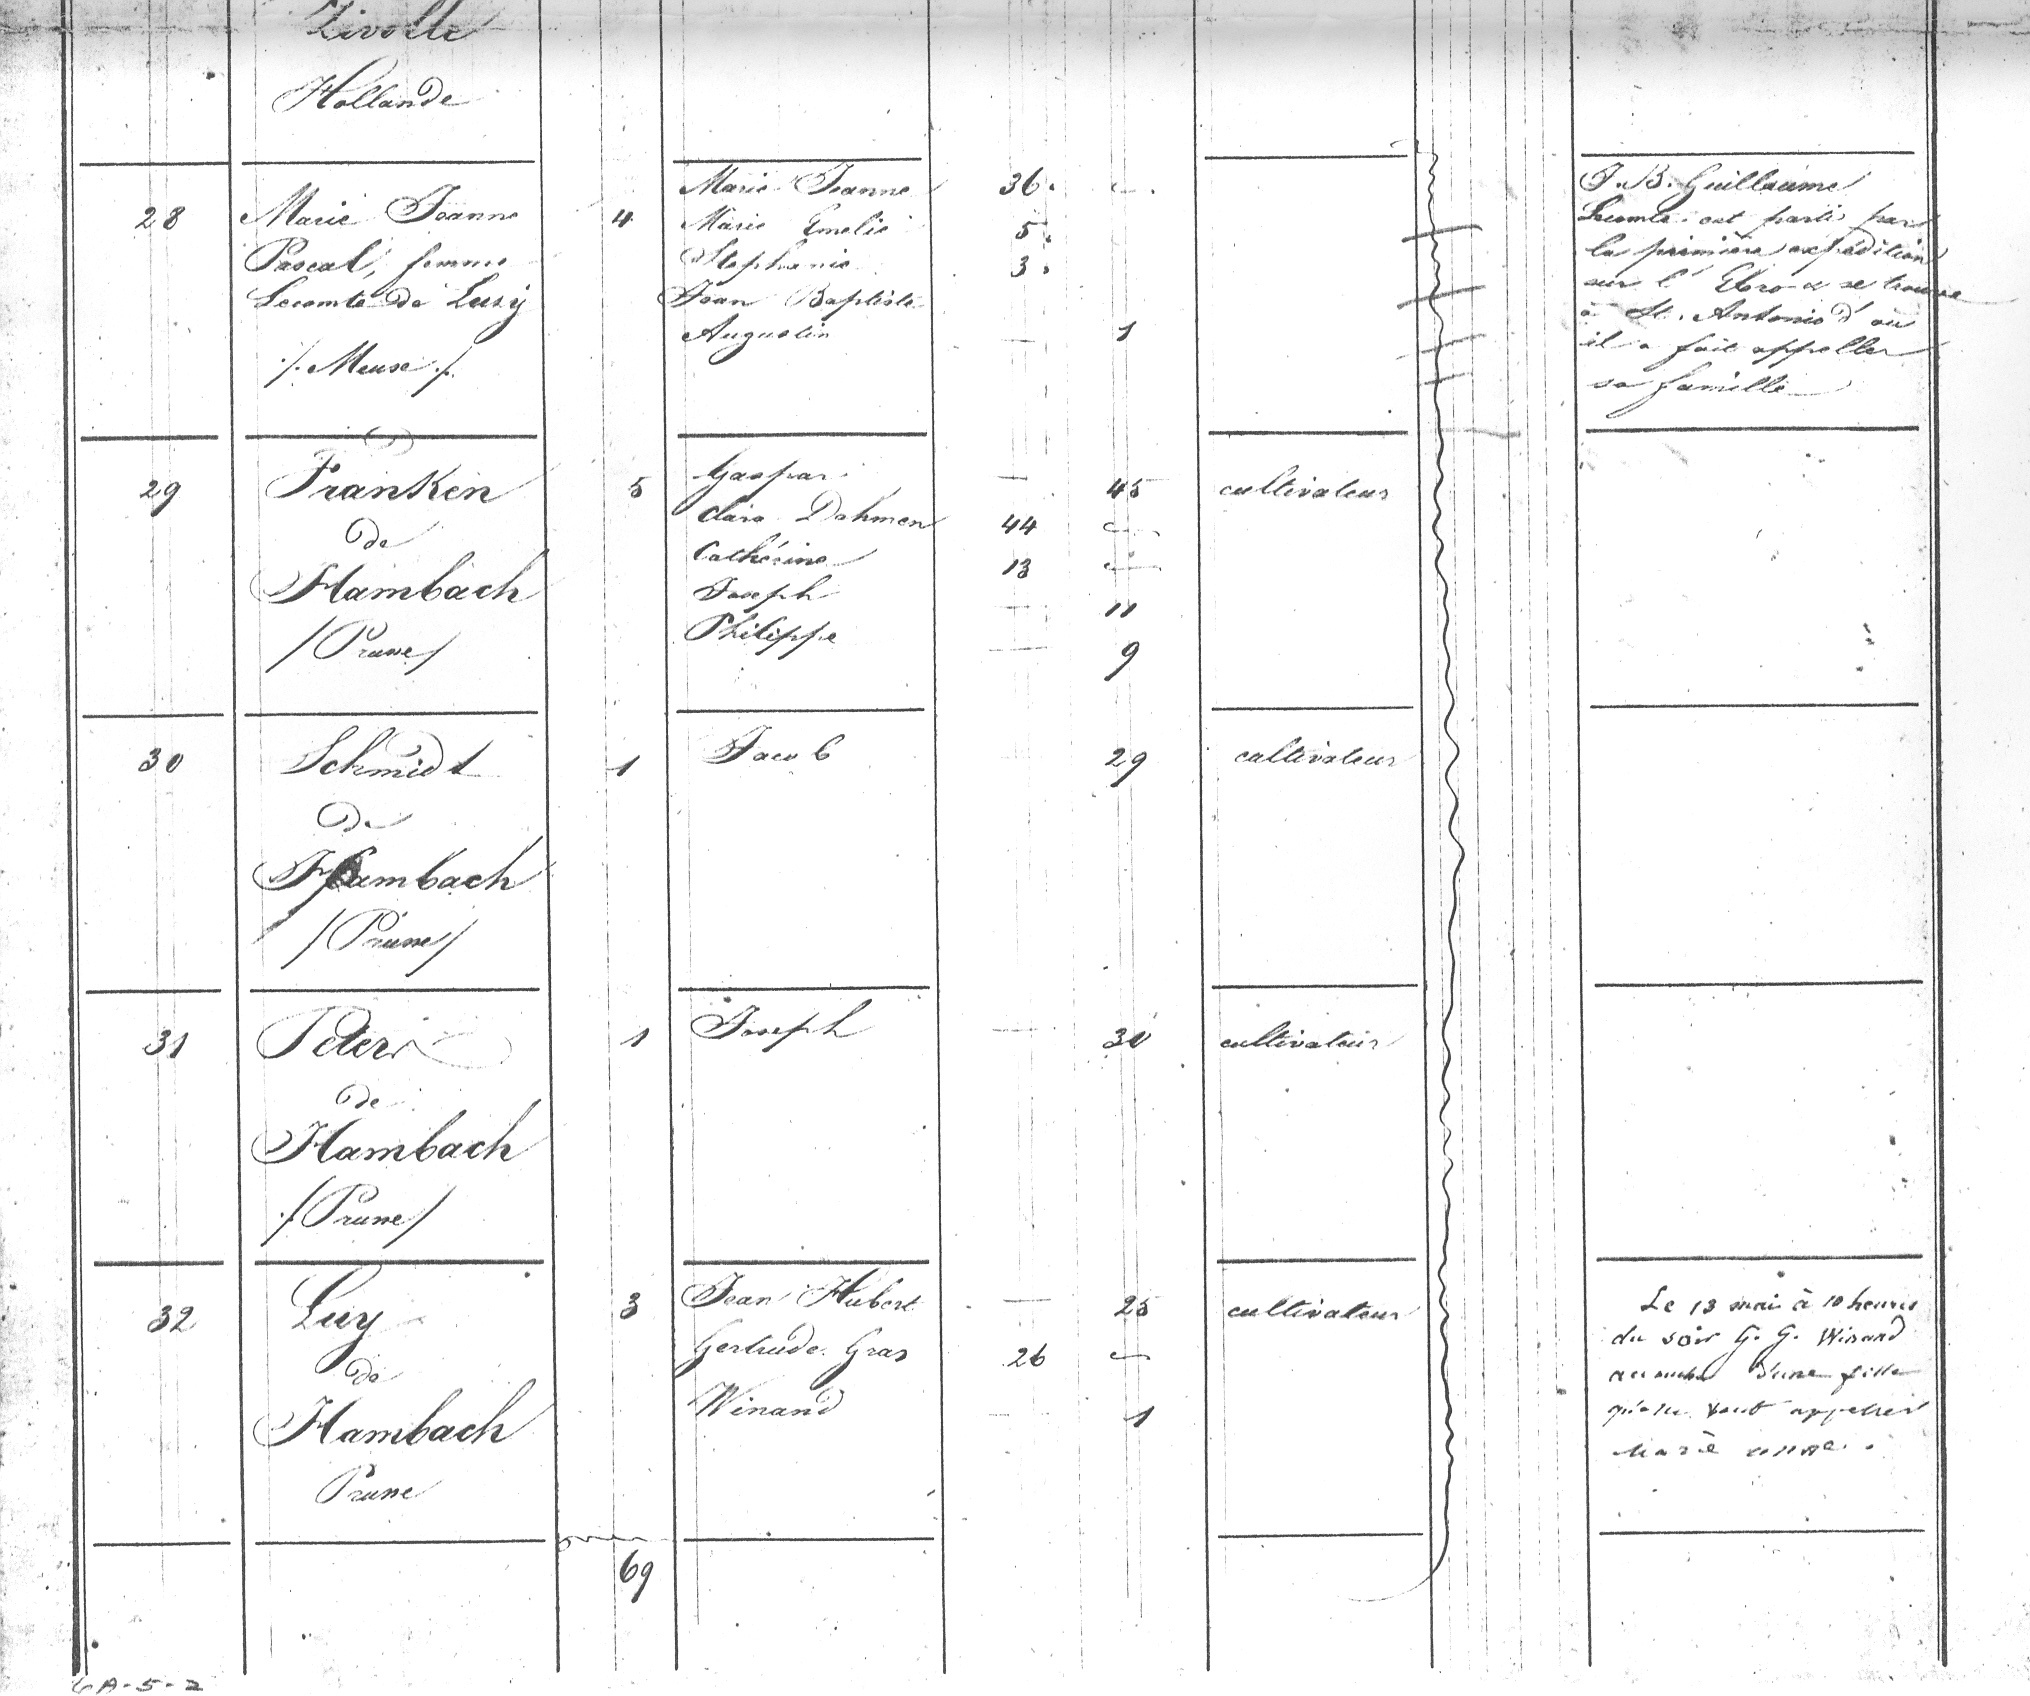 Zwolle
Hollande
28
Marie Jeanne
Pascal, femme
Lecomte de Luzy
/. Meuse /.
4
Marie Jeanne 36.
Marie Emelie 5.
Stephanie 3.
Jean Baptiste
Augustin — 1
J. B. Guillaume
Lecomte est parti par
la première expédition
sur l' Ebro & se trouve
à St. Antonio d' où
il a fait appeller
sa famille
29
Franken
de
Hambach
/ Prusse /
5
Gaspar — 45
Clara Dahmen 44 —
Cathérine 13 —
Joseph — 11
Philippe — 9
cultivateur
30
Schmidt
de
Hambach
/ Prusse /
1
Jacob 29
cultivateur
31
Peters
de
Hambach
/ Prusse /
1
Joseph — 30
cultivateur
32
Luy
de
Hambach
Prusse
3
Jean Hubert — 25
Gertrude Gras 26 —
Winand — 1
cultivateur
Le 13 mai à 10 heures
du soir G. G. Winand
accouche d'une fille
qu'elle veut appeller
marie anne.
69
6A-5-2